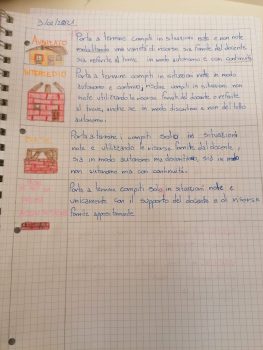 3/02/2021
AVANZATO
Porta a termine compiti in situazioni note e non note
mobilitando una varietà di risorse sia fornite dal docente
sia reperite altrove in modo autonomo e con continuità.
INTERMEDIO
Porta a termine compiti in situazioni note in modo
autonomo e continuo, risolve compiti in situazioni non
note utilizzando le risorse fornite dal docente o reperite
altrove, anche se in modo discontinuo e non del tutto
autonomo.
BASE
Porta a termine i compiti solo in situazioni
note e utilizzando le risorse fornite dal docente,
sia in modo autonomo ma discontinuo, sia in modo
non autonomo ma con continuità.
Porta a termine compiti solo in situazioni note e
unicamente con il supporto del docente e di risorse
fornite appositamente.